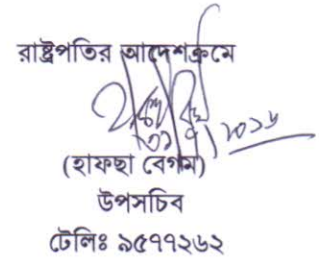 রাষ্ট্রপতির আদেশক্রমে
২০১৬
(হাফছা বেগম)
উপসচিব
টেলিঃ ৯৫৭৭২৬২